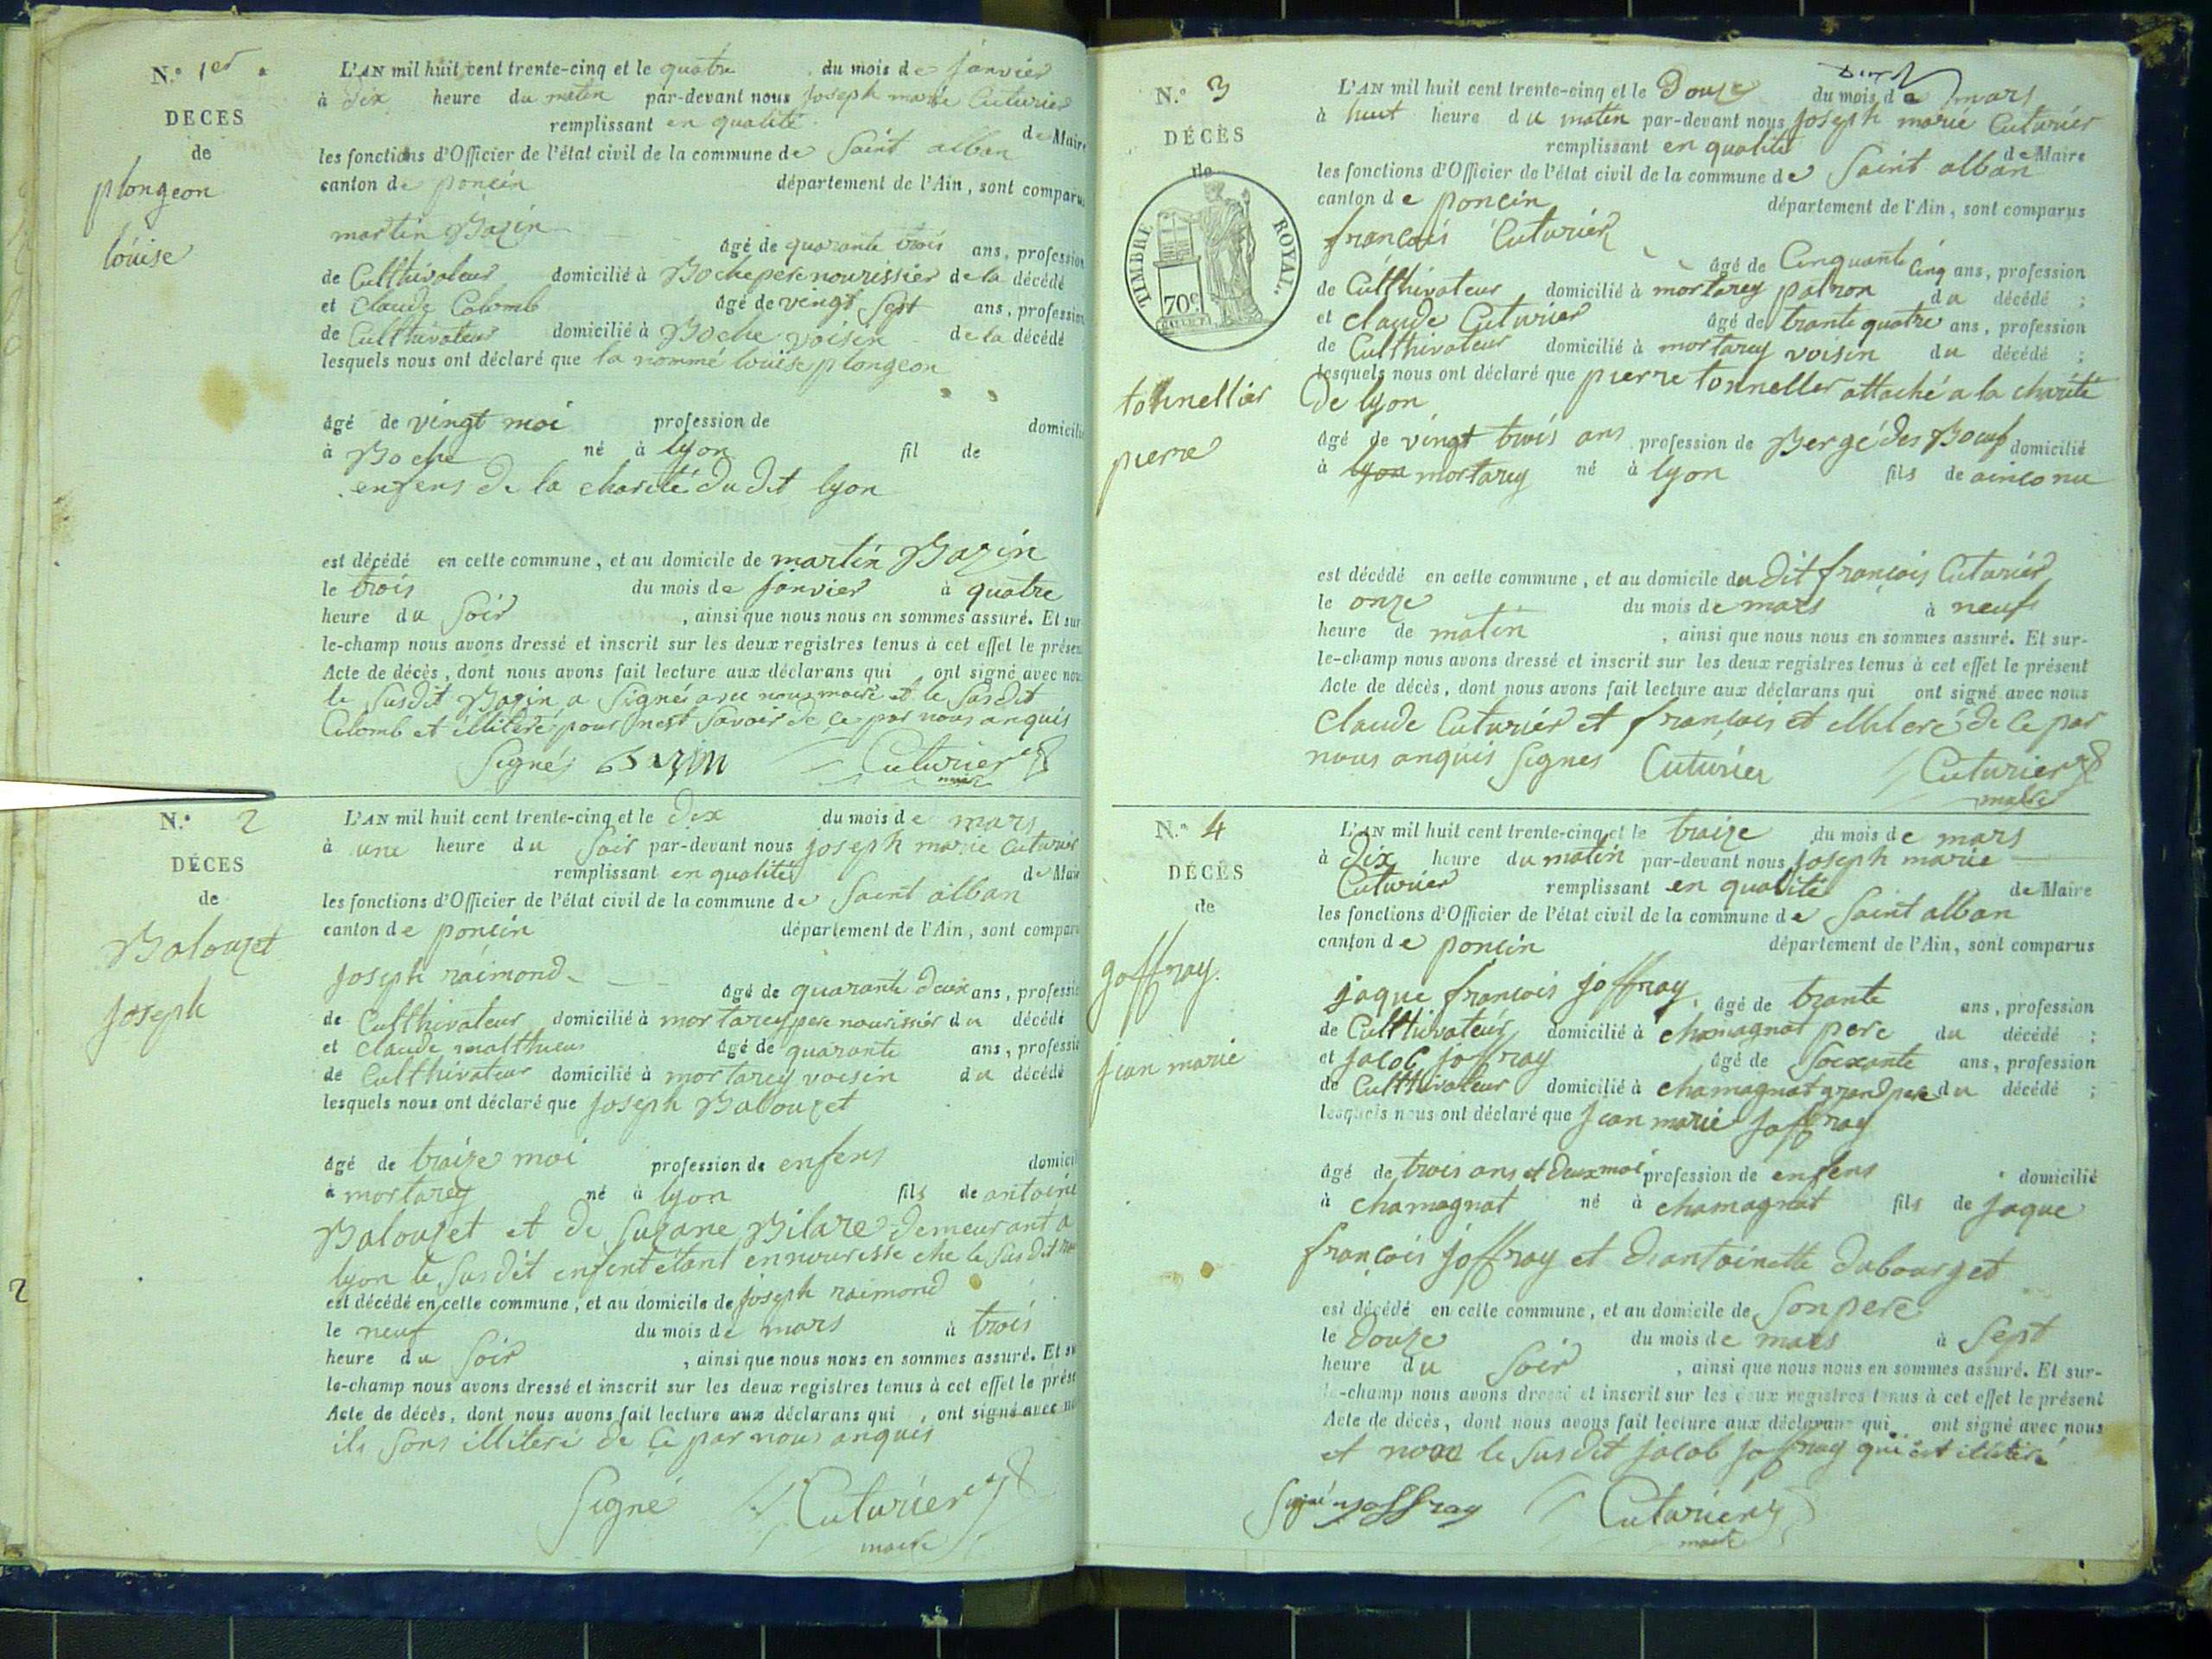 N.° 1er
DECES
de
plongeon
loüise
L'AN mil huit cent trente-cinq et le quatre du mois de janvier
à dix heure du matin par-devant nous joseph marie Cuturier
remplissant en qualité de Maire
les fonctions d'Officier de l'état civil de la commune de Saint alban
canton de poncin département de l'Ain, sont comparus
martin Bazin
âgé de quarante trois ans, profession
de Culthivateur domicilié à Boche pere nourissier de la décédé
et Claude Colomb âgé de vingt Sept ans, profession
de Cultivateur domicilié à Boche voisin de la décédé
lesquels nous ont déclaré que la nommé loüise plongeon
âgé de vingt moi profession de domicilié
à Boche né à lyon fil de
enfens de la charité du dit lyon
est décédé en cette commune, et au domicile de martin Bazin
le trois du mois de janvier à quatre
heure du Soir , ainsi que nous nous en sommes assuré. Et sur
le-champ nous avons dressé et inscrit sur les deux registres tenus à cet effet le présent
Acte de décès, dont nous avons fait lecture aux déclarans qui ont signé avec nous
le Susdit Bazin a Signé avec nous maire et le Susdit
Colomb et illiteré pour nest Savoir de ce par nous anquis
Signé Bazin Cuturier
maire
N.° 2
DÉCES
de
Balouzet
joseph
L'AN mil huit cent trente-cinq et le dix du mois de mars
à une heure du Soir par-devant nous joseph marie Cuturier
remplissant en qualité de Maire
les fonctions d'Officier de l'état civil de la commune de Saint alban
canton de poncin département de l'Ain, sont comparus
joseph raimond
âgé de quarante deux ans, profession
de Cultthivateur domicilié à mortarey pere nourissier du décédé
et Claude matthieu âgé de quarante ans, profession
de Cultthivateur domicilié à mortarey voisin du décédé
lesquels nous ont déclaré que joseph Balouzet
âgé de traize moi profession de enfens domicilié
à mortarey né à lyon fils de antoine
Balouzet et de Suzane Bilare demeurant a
lyon le Susdit enfent étant en nouresse che le Susdit
est décédé en cette commune, et au domicile de joseph raimond
le neuf du mois de mars à trois
heure du Soir , ainsi que nous nous en sommes assuré. Et sur
le-champ nous avons dressé et inscrit sur les deux registres tenus à cet effet le présent
Acte de décès, dont nous avons fait lecture aux déclarans qui , ont signé avec nous
ils Sons illiteré de Ce par nous anquis
Signé Cuturier
maire
N.° 3
DÉCÈS
de
TIMBRE ROYAL.
70c
tonnellier
pierre
L'AN mil huit cent trente-cinq et le Douze du mois de mars
à huit heure du matin par-devant nous joseph marie Cuturier
remplissant en qualité de Maire
les fonctions d'Officier de l'état civil de la commune de Saint alban
canton de poncin département de l'Ain, sont comparus
françois Cuturier
âgé de Cinquante Cinq ans, profession
de Cultthivateur domicilié à mortarey patron du décédé ;
et claude Cuturier âgé de trante quatre ans, profession
de Cultthivateur domicilié à mortarey voisin du décédé ;
lesquels nous ont déclaré que pierre tonneller attaché a la charité
De lyon
âgé de vingt trois ans profession de Bergé des Boeuf domicilié
à lyon mortarey né à lyon fils de ainconu
est décédé en cette commune, et au domicile du Dit françois Cuturier
le onze du mois de mars à neuf
heure de matin , ainsi que nous nous en sommes assuré. Et sur-
le-champ nous avons dressé et inscrit sur les deux registres tenus à cet effet le présent
Acte de décès, dont nous avons fait lecture aux déclarans qui ont signé avec nous
Claude Cuturier et françois et illiteré de Ce par
nous anquis Signes Cuturier Cuturier
maire
N.° 4
DÉCÈS
de
joffray
jean marie
L'AN mil huit cent trente-cinq et le traize du mois de mars
à Dix heure du matin par-devant nous joseph marie
Cuturier remplissant en qualité de Maire
les fonctions d'Officier de l'état civil de la commune de Saint alban
canton de poncin département de l'Ain, sont comparus
jaque françois joffray âgé de trante ans, profession
de Cultthivateur domicilié à chamagnat pere du décédé ;
et jacob joffray âgé de Soixante ans, profession
de Cultthivateur domicilié à chamagnat grand pere du décédé ;
lesquels nous ont déclaré que jean marie joffray
âgé de trois ans et deux moi profession de enfens domicilié
à chamagnat né à chamagnat fils de jaque
françois joffray et d'antoinette dubourget
est décédé en cette commune, et au domicile de Son pere
le Douze du mois de mars à Sept
heure du Soir , ainsi que nous nous en sommes assuré. Et sur-
le-champ nous avons dressé et inscrit sur les deux registres tenus à cet effet le présent
Acte de décès, dont nous avons fait lecture aux déclarans qui ont signé avec nous
et non le Susdit jacob joffray qui est illiteré
Signé joffray Cuturier
maire